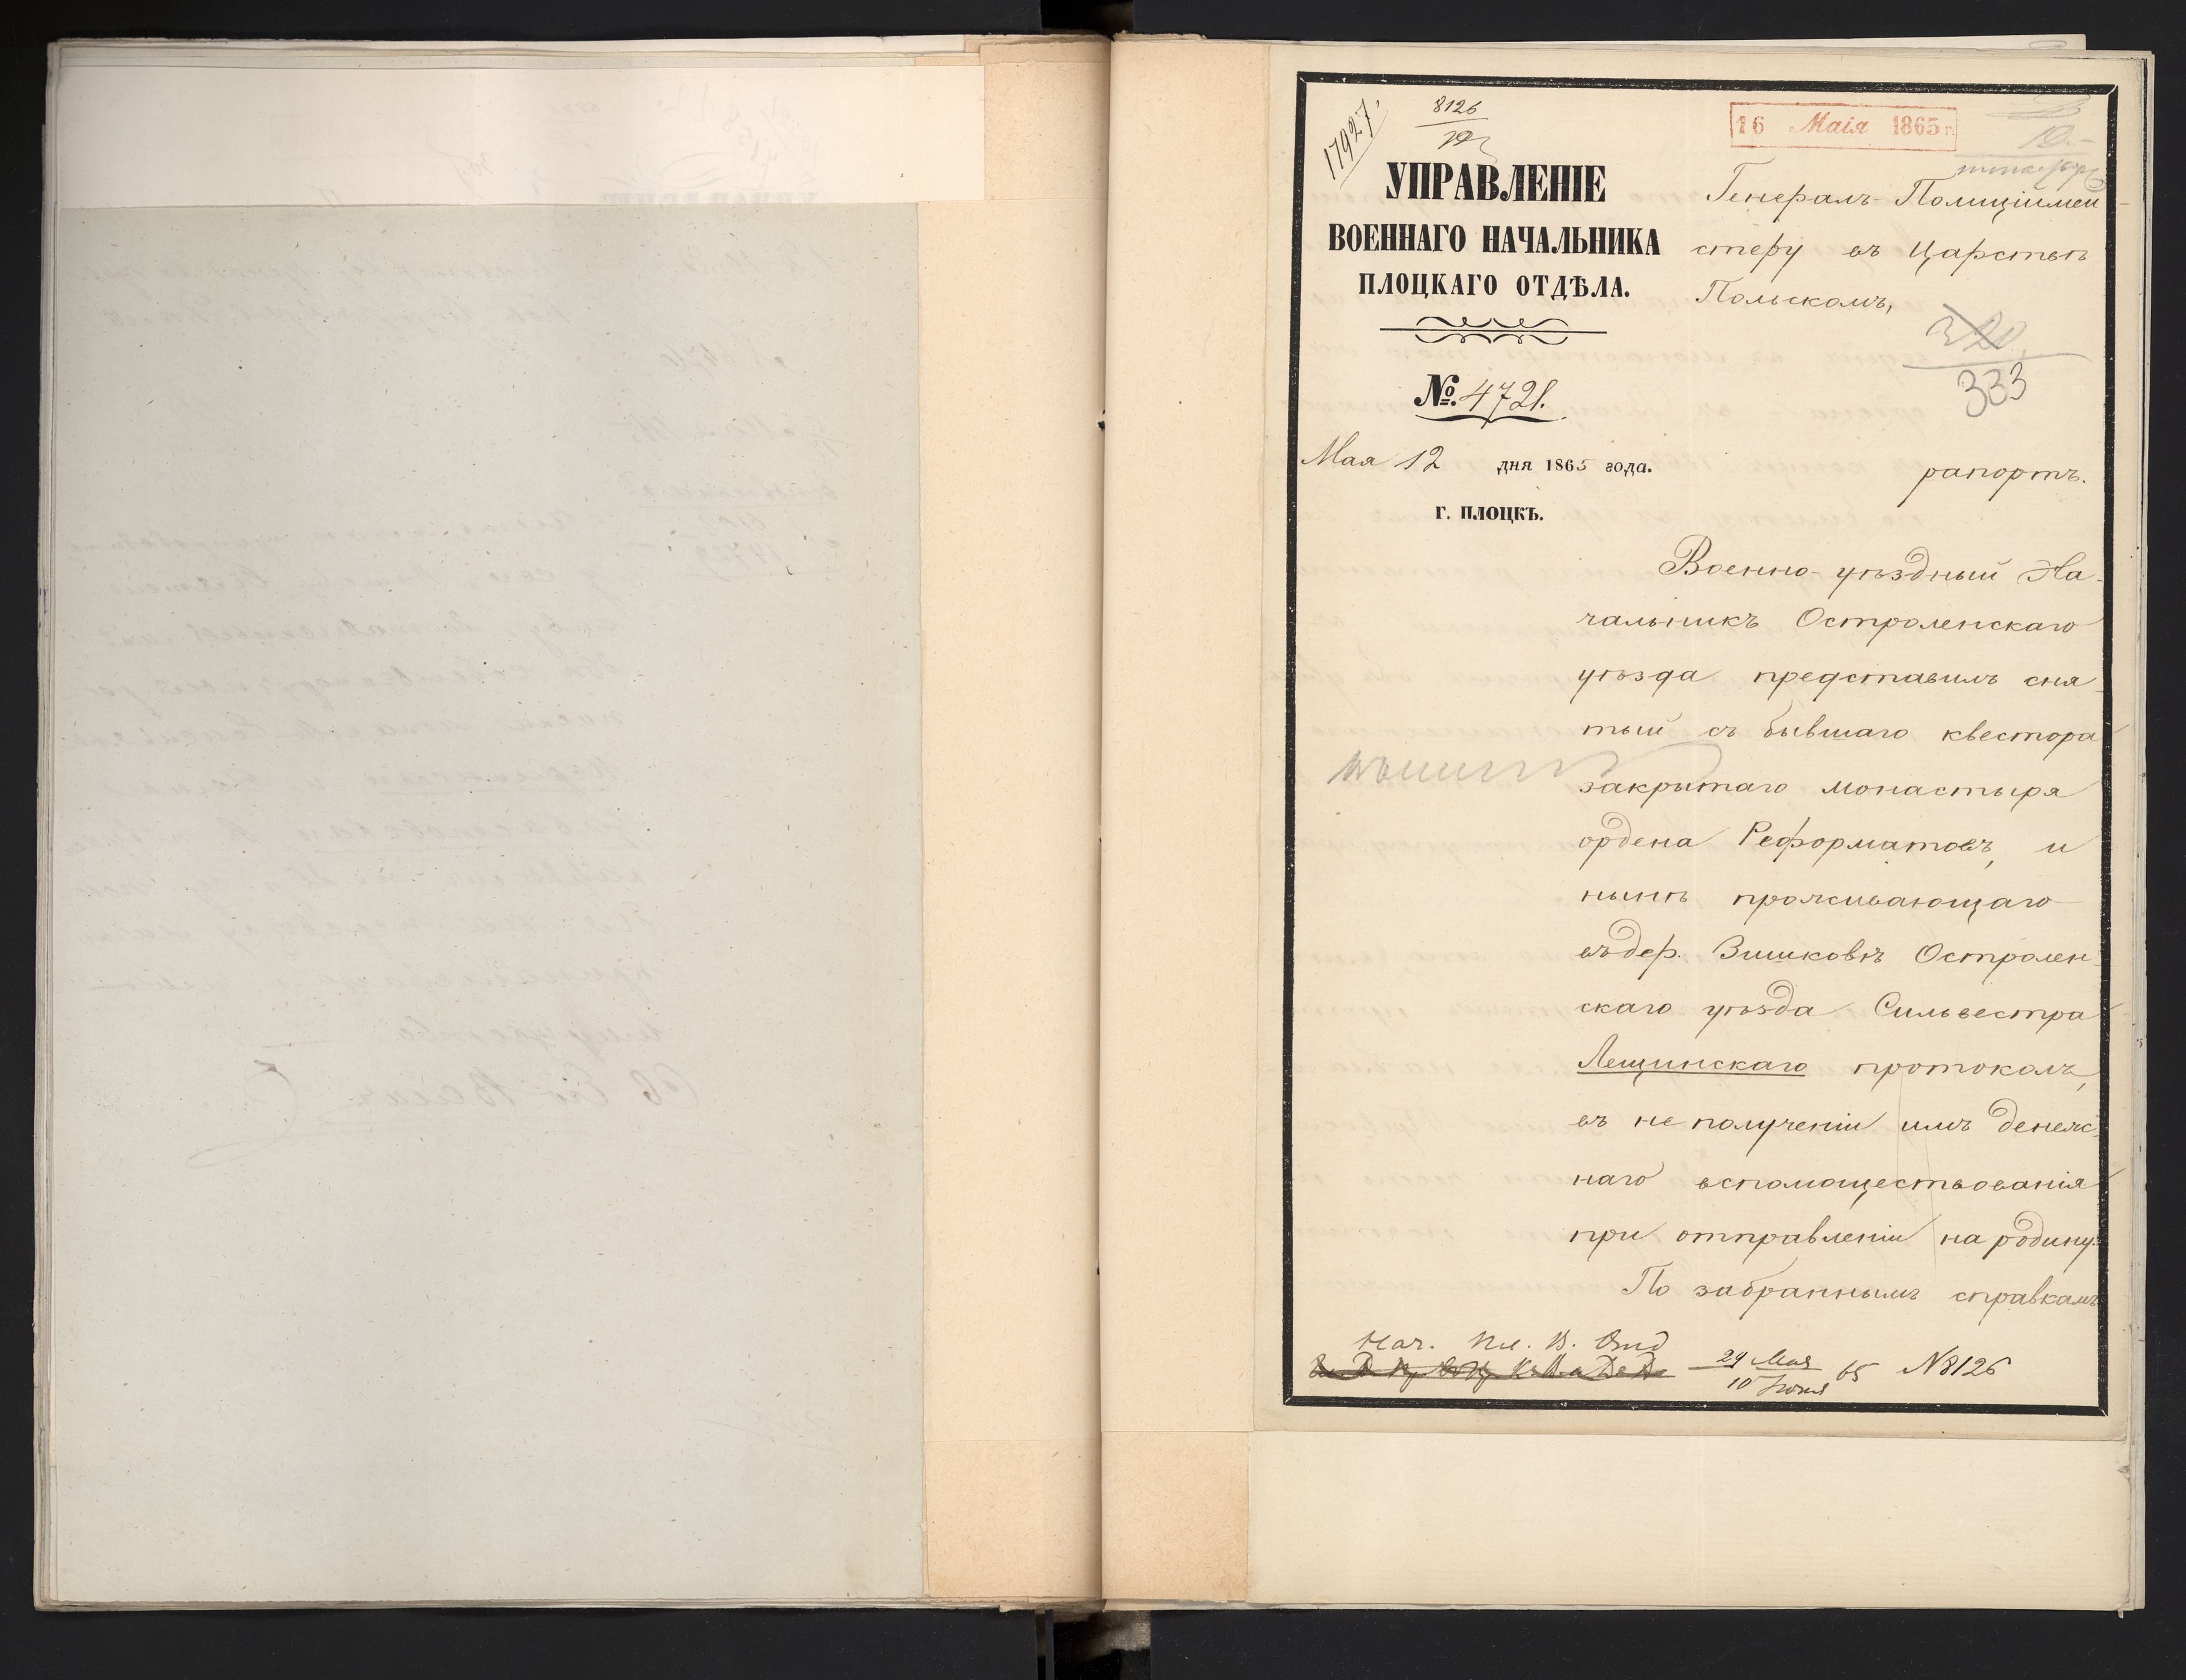 17927.
8126
16 Маія 1865 г.
УПРАВЛЕНІЕ
ВОЕННАГО НАЧАЛЬНИКА
ПЛОЦКАГО ОТДѢЛА.
№. 4721.
Мая 12 дня 1865 года.
г. ПЛОЦКЪ.
Генералъ-Полиціймей
стеру въ Царствѣ
Польскомъ,
320
333
рапортъ.
Военно-уѣздный На-
чальникъ Остроленскаго
уѣзда представилъ сня-
тый съ бывшаго квестора
закрытаго монастыря
ордена Реформатовъ, и
нынѣ проживающаго
въ дер. Вишковѣ Остролен-
скаго уѣзда Сильвестра
Лещинскаго протоколъ,
въ не полученіи имъ денеж-
наго вспомоществованія
при отправленіи на родину.
По забраннымъ справкамъ
Нач. Пл. В. Отд
29 Мая
10 Іюня 65 N 8126